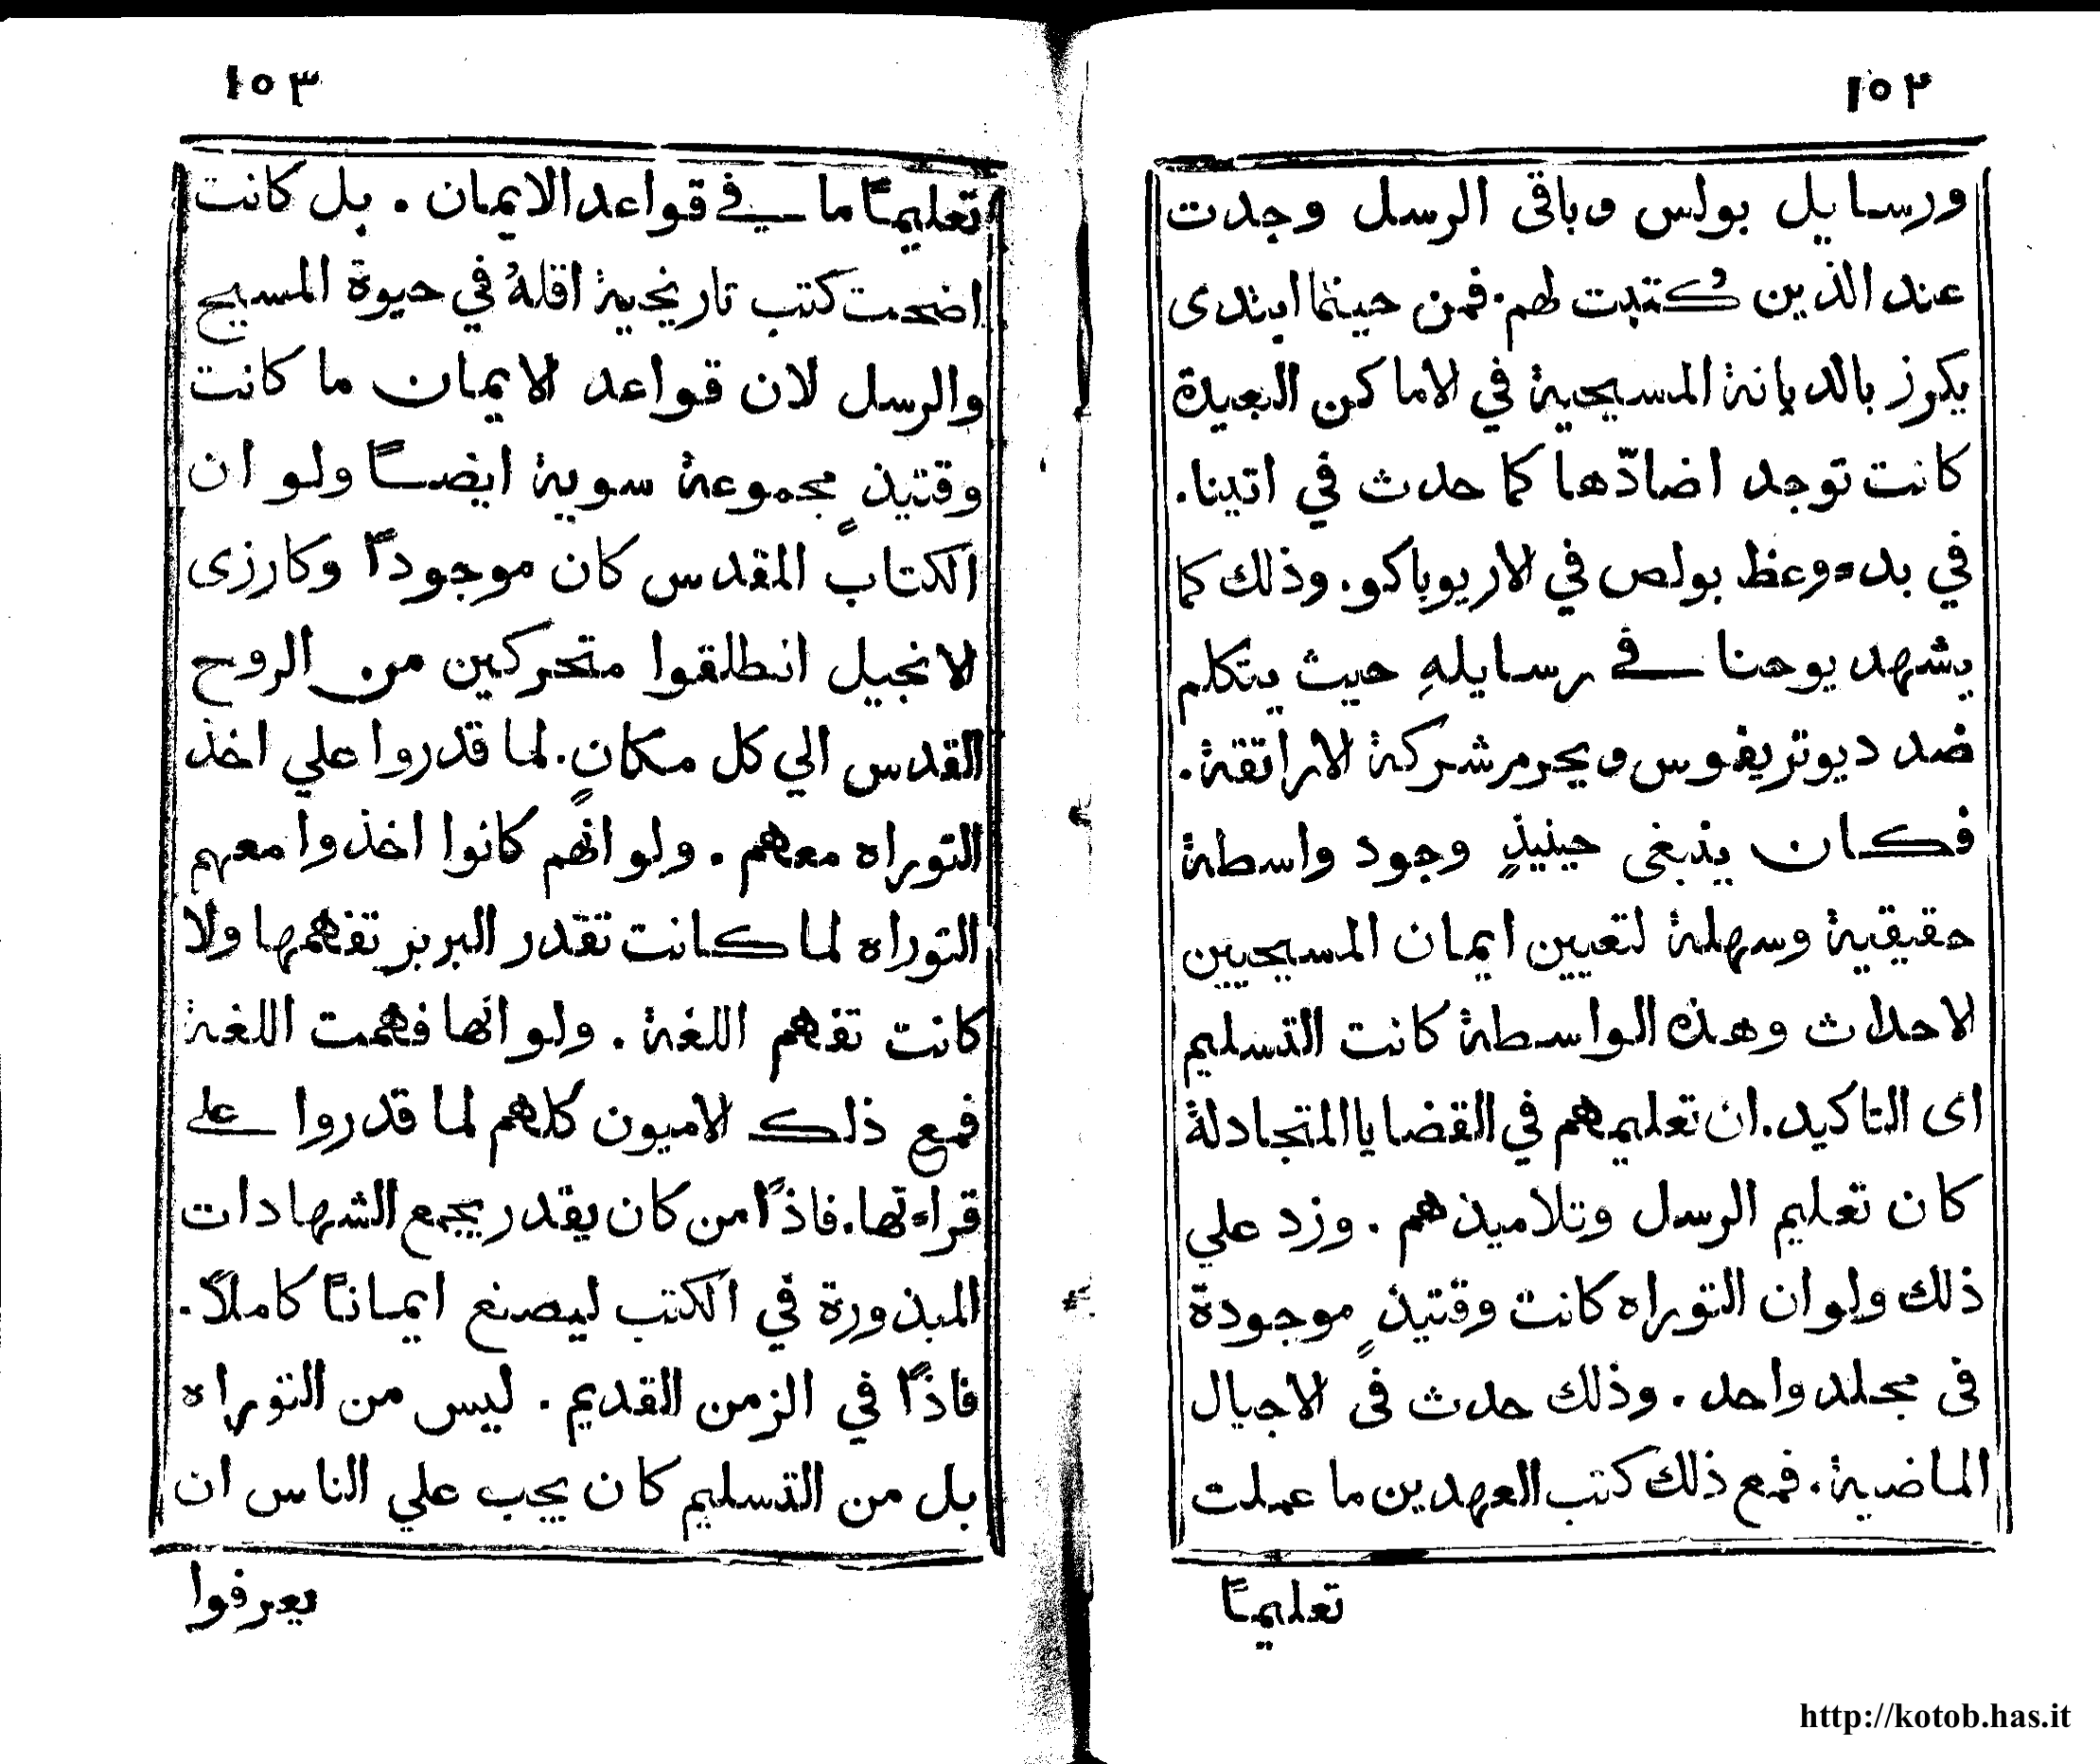 ١٥٢
ورسايل بولس وباقى الرسل وجدت
عند الذين كُتبت لهم. فمن حينما ابتدى
يكرز بالديانة المسيحية في الاماكن البعيدة
كانت توجد اضادّها كما حدث في اتينا.
في بدء وعظ بولص في الاريوباكو. وذلك كما
يشهد يوحنا في رسايلهِ حيث يتكلم
ضد ديوتريفوس ويحرم شركة الاراتقة.
فكان ينبغى حينيذٍ وجود واسطة
حقيقية وسهلة لتعيين ايمان المسيحيين
الاحداث وهذه الواسطة كانت التسليم
اى التاكيد. ان تعليمهم في القضايا المتجادلة
كان تعليم الرسل وتلاميذهم. وزد علي
ذلك ولو ان التوراه كانت وقتيذٍ موجودة
فى مجلد واحد. وذلك حدث فى الاجيال
الماضية. فمع ذلك كتب العهدين ما عملت
تعليمًا
١٥٣
تعليمًا ما في قواعد الايمان. بل كانت
اضحت كتب تاريخيية اقلهُ في حيوة المسيح
والرسل لان قواعد الايمان ما كانت
وقتيذٍ مجموعة سوية ايضًا ولو ان
الكتاب المقدس كان موجودًا وكارزى
الانجيل انطلقوا متحركين من الروح
القدس الي كل مكانٍ. لما قدروا علي اخذ
التوراه معهم. ولو انهم كانوا اخذوا معهم
التوراه لما كانت تقدر البربر تفهمها ولا
كانت تفهم اللغة. ولو انها فهمت اللغة
فمع ذلك الاميون كلهم لما قدروا علي
قراءتها. فاذًا من كان يقدر يجمع الشهادات
المبذورة في الكتب ليصنع ايمانًا كاملًا.
فاذًا في الزمن القديم. ليس من التوراه
بل من التسليم كان يجب علي الناس ان
يعرفوا
http://kotob.has.it